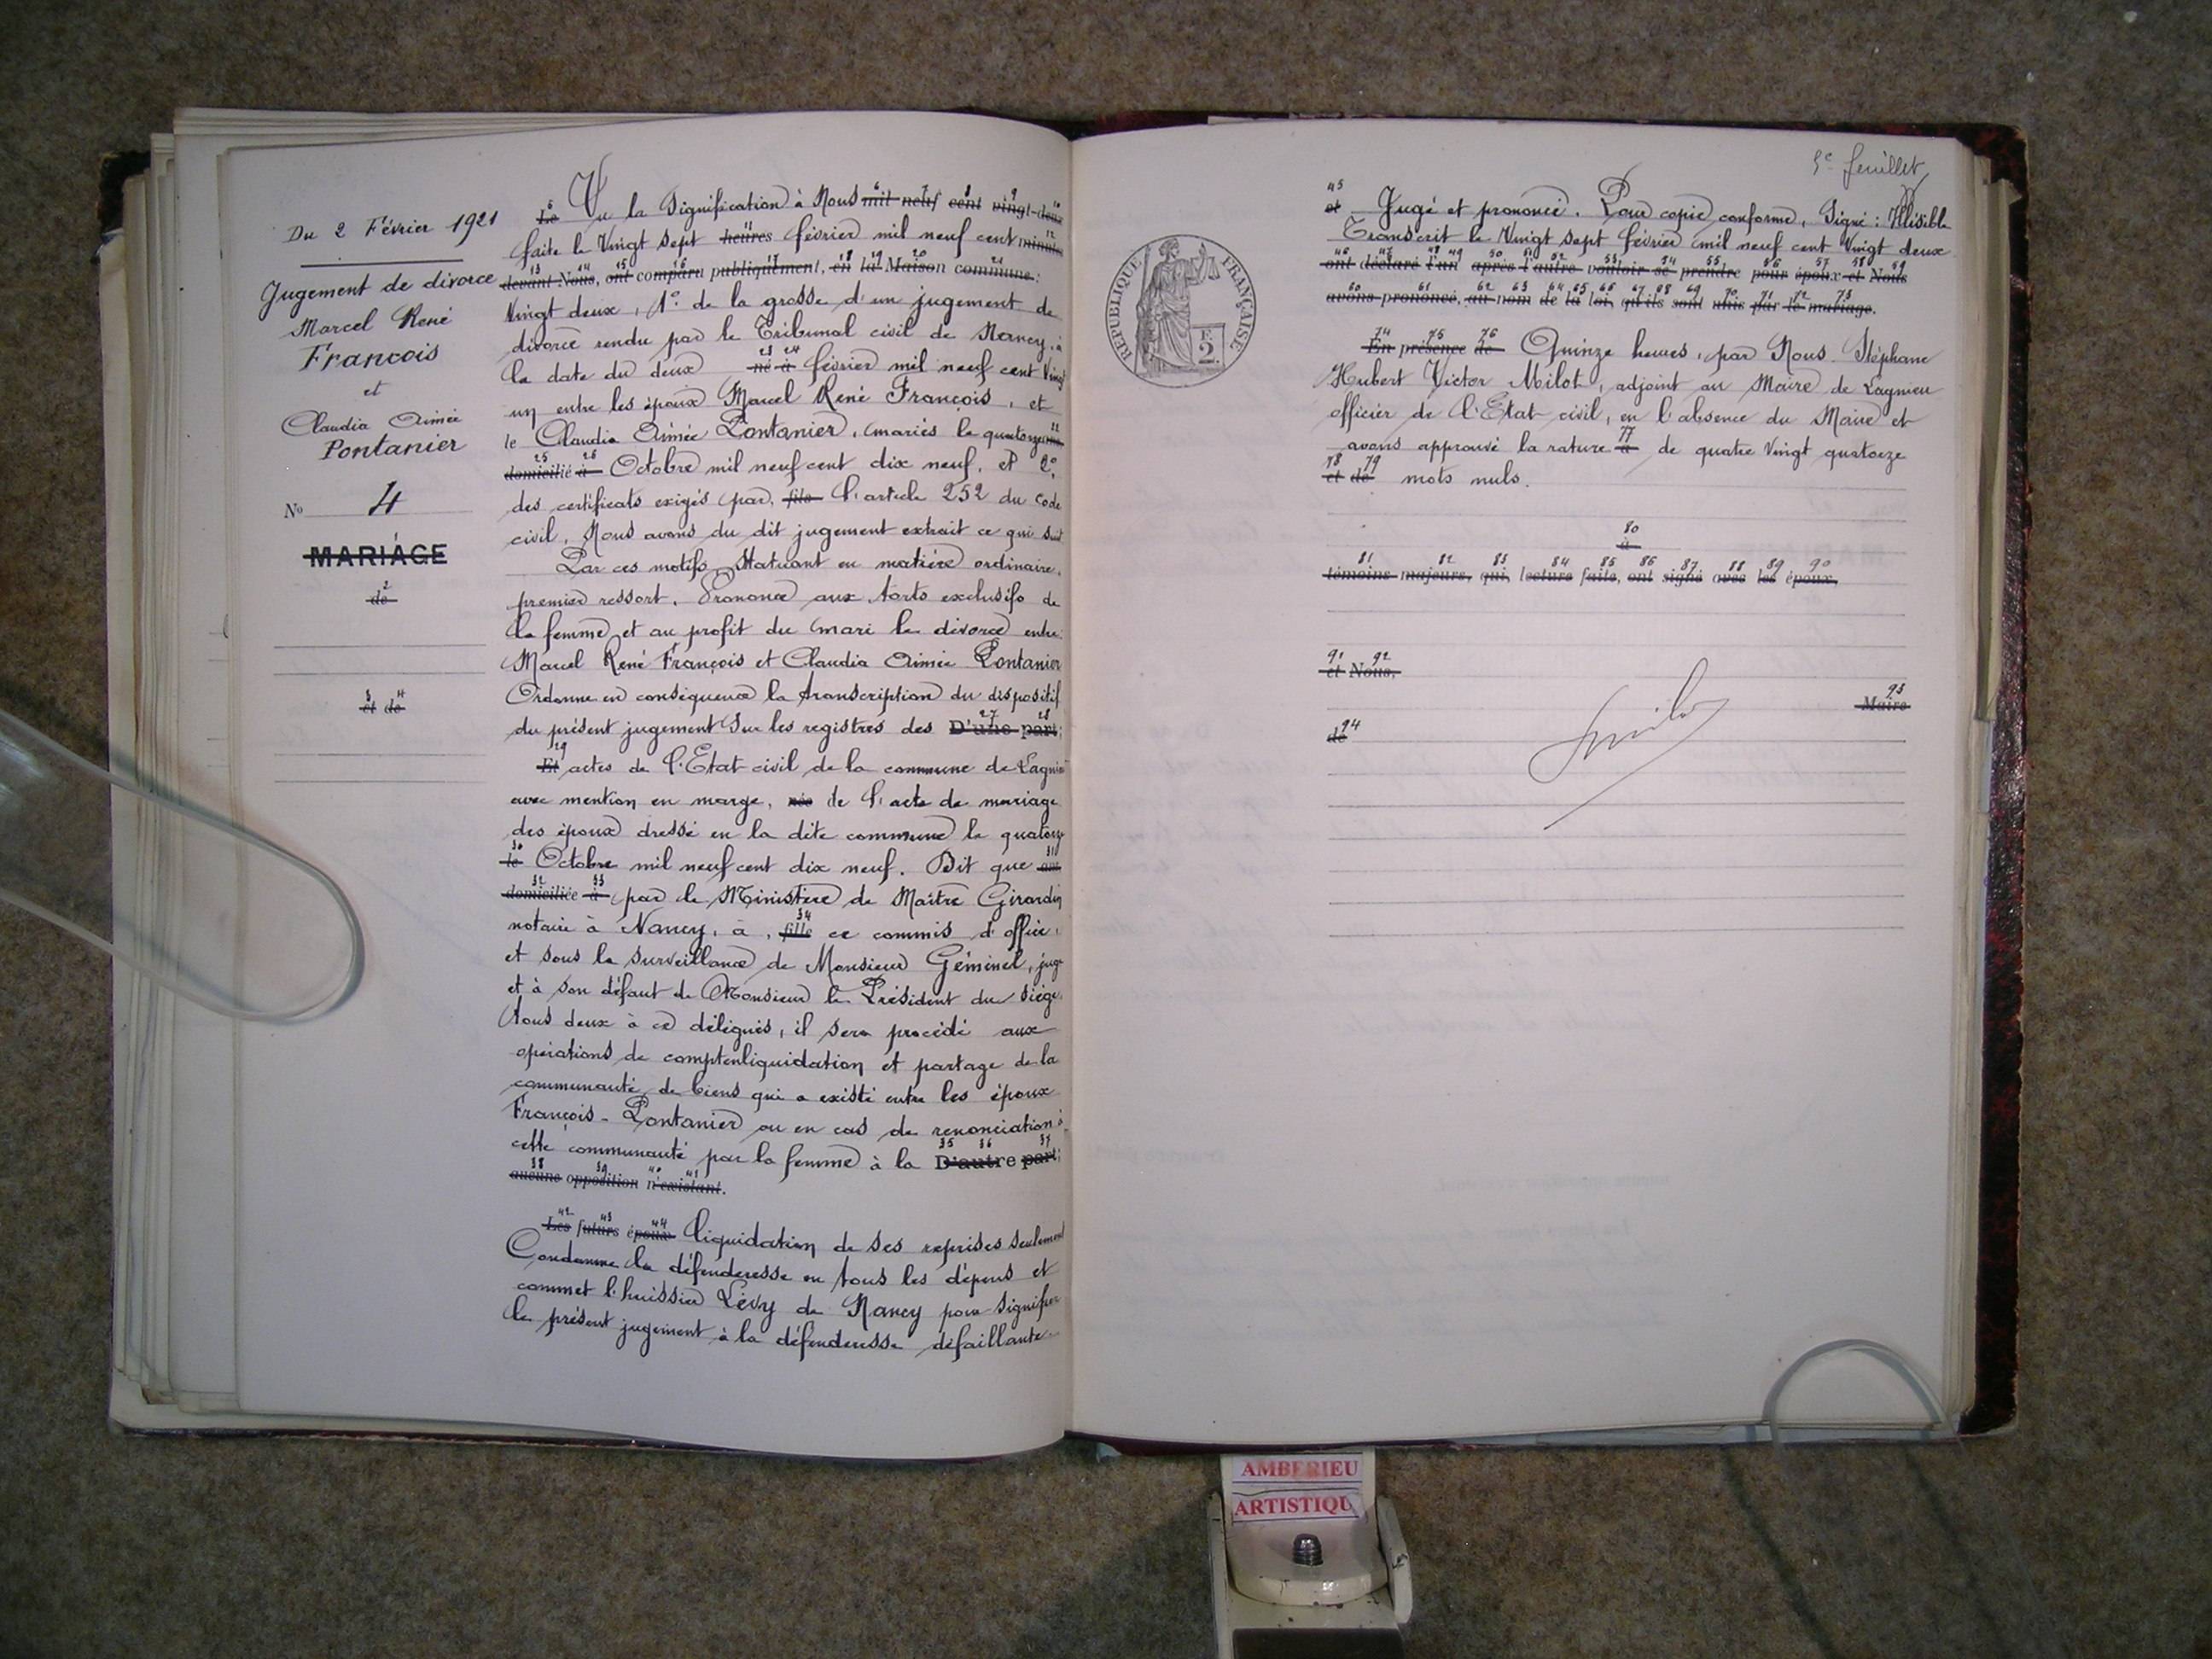 Du 2 Février 1921
Jugement de divorce
Marcel René
François
et
Claudia Aimée
Pontanier
No 4
MARIAGE
2
de
3 4
et de
5 6 7 8 9 10
Le Vu la Signification à Nous mil neuf cent vingt-deux
11 12
faite le Vingt sept heures février mil neuf cent minute
13 14 15 16 17 18 19 20 21
devant Nous, ont comparu publiquement, en la Maison commune :
Vingt deux, 1° de la grosse d'un jugement de
divorce rendu par le Tribunal civil de Nancy, à
23 24
la date du deux né à février mil neuf cent Vingt
un entre les époux Marcel René François, et
22
le Claudia Aimée Pontanier, mariés le quatorze
25 26
domicilié à Octobre mil neuf cent dix neuf, et 2°
des certificats exigés par, fils l'article 252 du Code
civil, Nous avons du dit jugement extrait ce qui suit
Par ces motifs, Statuant en matière ordinaire,
premier ressort. Prononce aux torts exclusifs de
la femme et au profit du mari le divorce entre
Marcel René François et Claudia Aimée Pontanier
Ordonne en conséquence la transcription du dispositif
27 28
du présent jugement Sur les registres des D'une part;
29
Et actes de l'Etat civil de la commune de Lagnieu
avec mention en marge, née de l'acte de mariage
des époux dressé en la dite commune le quatorze
30 31
le Octobre mil neuf cent dix neuf. Dit que
32 33
domiciliée à par le Ministère de Maître Girardin
34
notaire à Nancy, à, fille ce commis d'office,
et sous la surveillance de Monsieur Géminel, juge
et à son défaut de Monsieur le Président du siège
tous deux à ce délégués, il sera procédé aux
opérations de compte liquidation et partage de la
communauté de biens qui a existé entre les époux
François - Pontanier ou en cas de renonciation à
35 36 37
cette communauté par la femme à la D'autre part;
38 39 40 41
aucune opposition n'existant.
42 43 44
Les futurs époux liquidation de ses reprises seulement
Condamne la défenderesse en tous les dépens et
commet l'huissier Lévy de Nancy pour signifier
le présent jugement à la défenderesse défaillante
REPUBLIQUE FRANÇAISE
2 F.
5e feuillet
45
et Jugé et prononcé. Pour copie conforme, Signé : Illisible
Transcrit le Vingt sept février mil neuf cent Vingt deux
46 47 48 49 50 51 52 53 54 55 56 57 58 59
ont déclaré l'un après l'autre vouloir se prendre pour époux et Nous
60 61 62 63 64 65 66 67 68 69 70 71 72 73
avons prononcé, au nom de la loi, qu'ils sont unis par le mariage.
74 75 76
En présence de Quinze heures, par Nous Stéphane
Hubert Victor Milot, adjoint au Maire de Lagnieu
officier de l'Etat civil, en l'absence du Maire et
77
avons approuvé la rature à de quatre Vingt quatorze
78 79
et de mots nuls.
80
à
81 82 83 84 85 86 87 88 89 90
témoins majeurs, qui, lecture faite, ont signé avec les époux,
91 92
et Nous,
93
Maire
94
de
AMBERIEU
ARTISTIQU